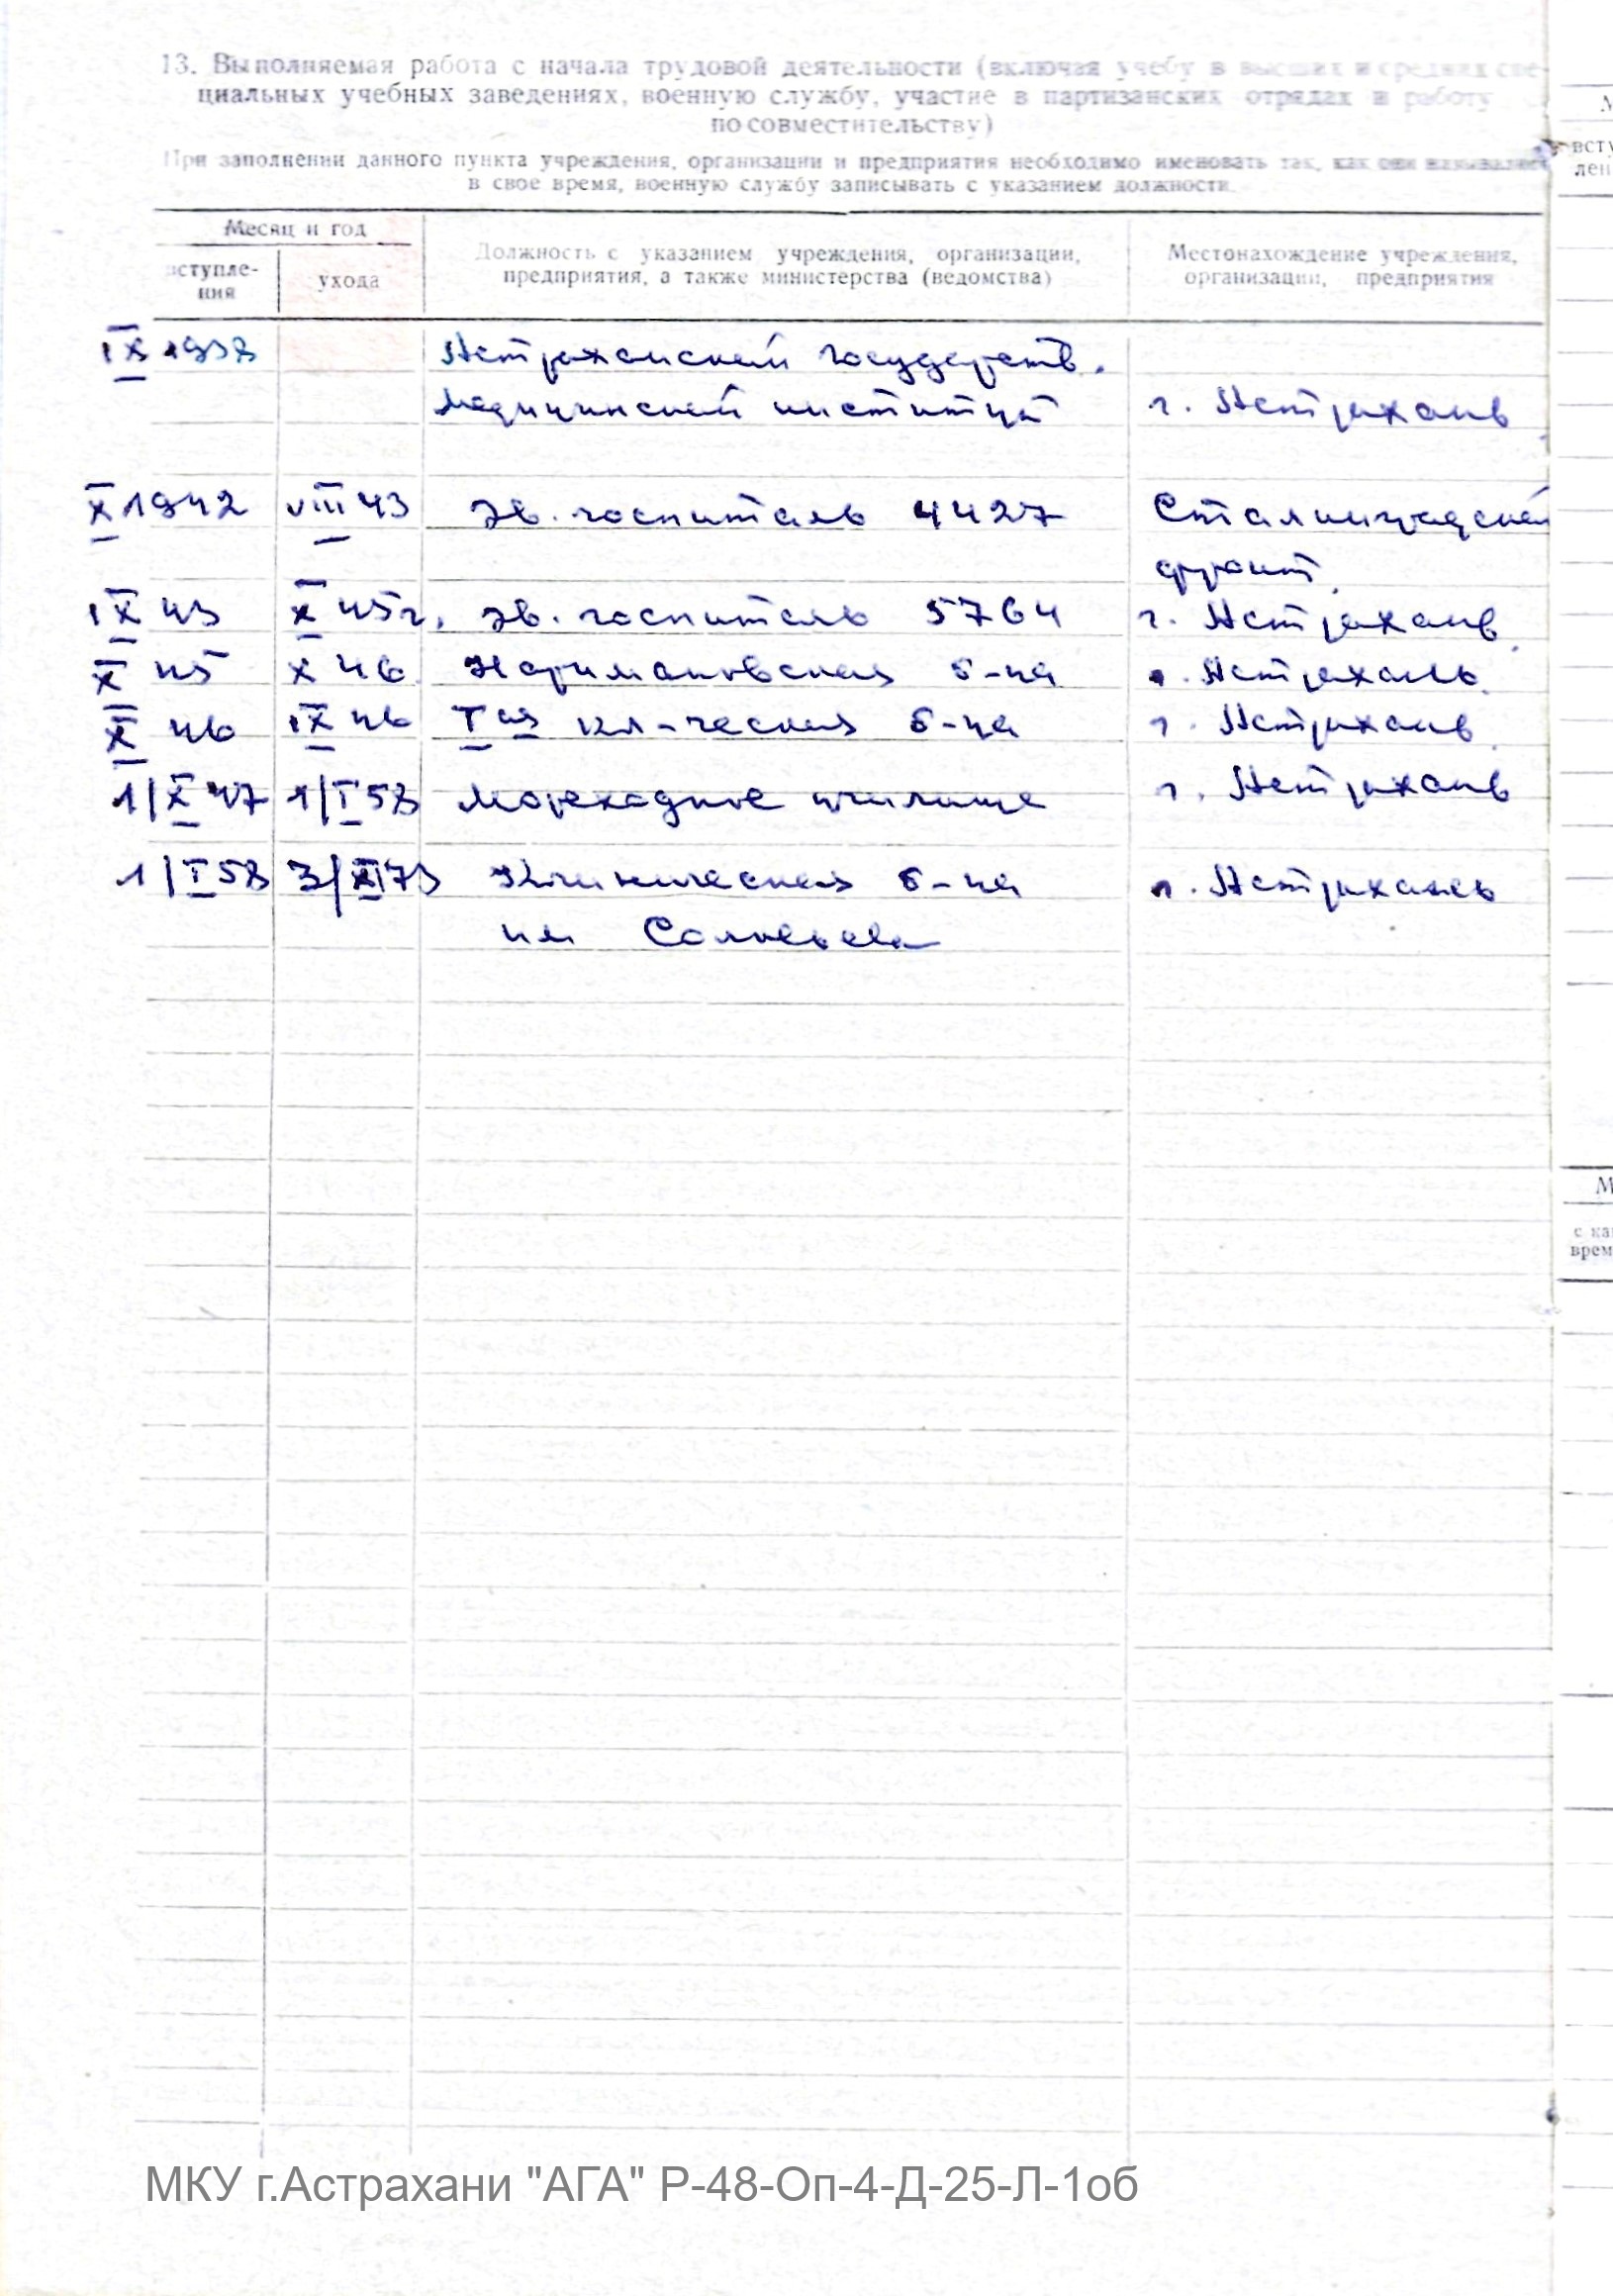 13. Выполняемая работа с начала трудовой деятельности (включая учебу в высших и средних спе-
циальных учебных заведениях, военную службу, участие в партизанских отрядах и работу
по совместительству)
При заполнении данного пункта учреждения, организации и предприятия необходимо именовать так, как они назывались
в свое время, военную службу записывать с указанием должности.
Месяц и год
вступле-
ния
ухода
Должность с указанием учреждения, организации,
предприятия, а также министерства (ведомства)
Местонахождение учреждения,
организации, предприятия
IX 1938 Астраханский государств.
медицинский институт г. Астрахань
X 1942 VIII 43 Эв. госпиталь 4427 Сталинградский
фронт.
IX 43 X 45г. Эв. госпиталь 5764 г. Астрахань
X 45 X 46 Наримановская б-ца г. Астрахань.
X 46 IX 46 I ая кл-ческая б-ца г. Астрахань.
1/X 47 1/I 58 Мореходное училище г. Астрахань
1/I 58 3/XI 73 Клиническая б-ца г. Астрахань
им Соловьева
М
всту
лен
М
с ка
врем
МКУ г.Астрахани "АГА" Р-48-Оп-4-Д-25-Л-1об